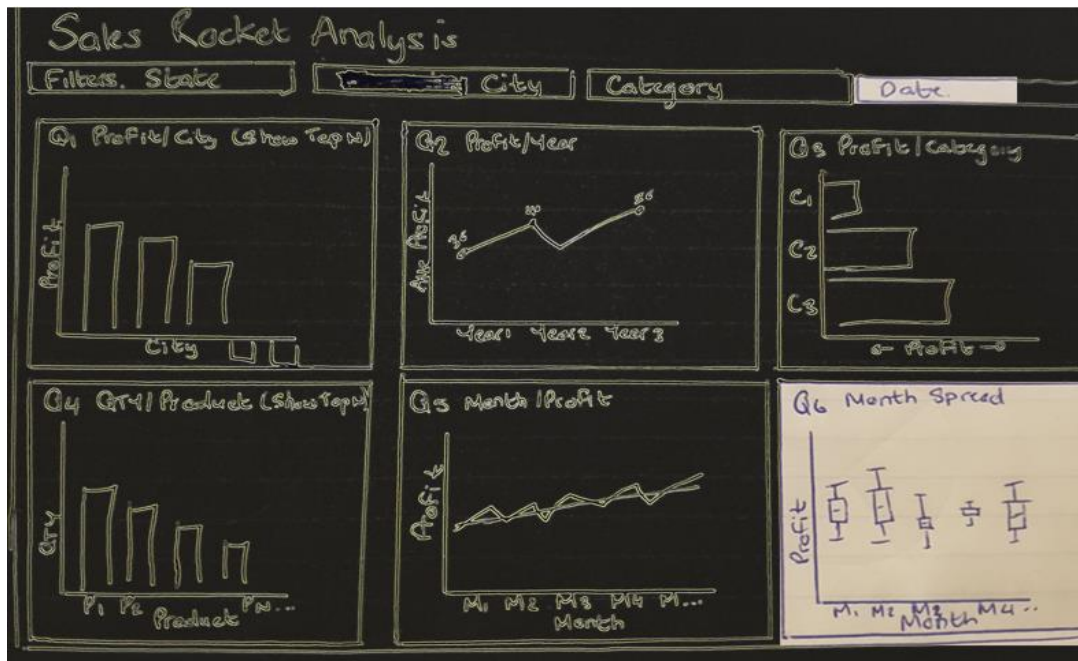 Sales Rocket Analysis
Filters. State
City
Category
Date.
Q1 Profit/City (Show Top N)
Profit
City
Q2 Profit/Year
Profit
Year1 Year2 Year3
Q3 Profit/Category
C1
C2
C3
Profit
Q4 QTY/Product (Show Top N)
QTY
P1 P2 PN...
Product
Q5 Month/Profit
Profit
M1 M2 M3 M4 M...
Month
Q6 Month Spread
Profit
M1 M2 M3 M4..
Month